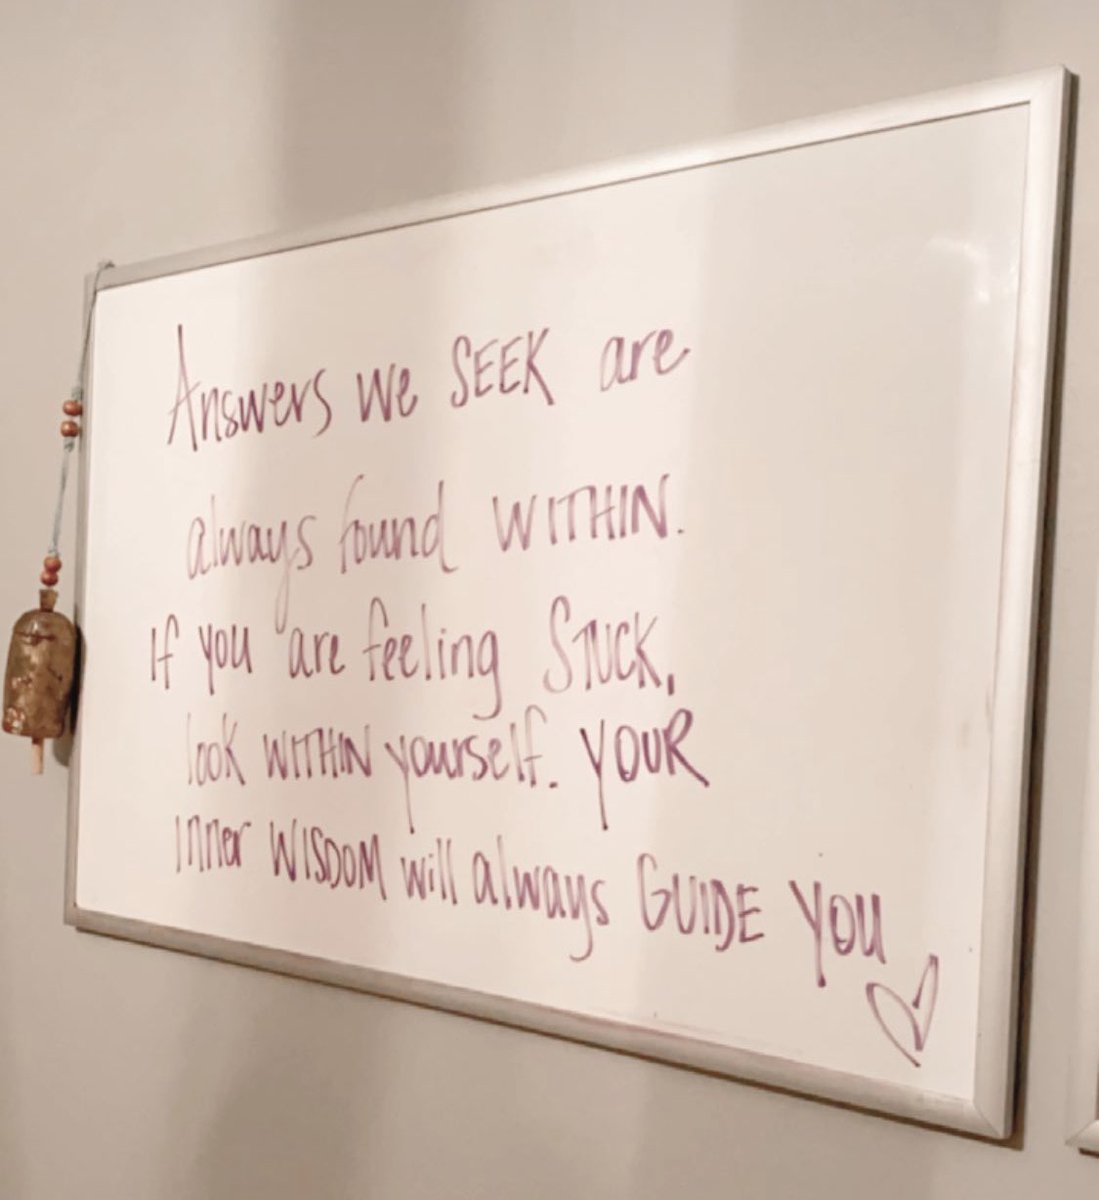 Answers we SEEK are
always found WITHIN.
If you are feeling STUCK,
look WITHIN yourself. YOUR
inner WISDOM will always GUIDE YOU